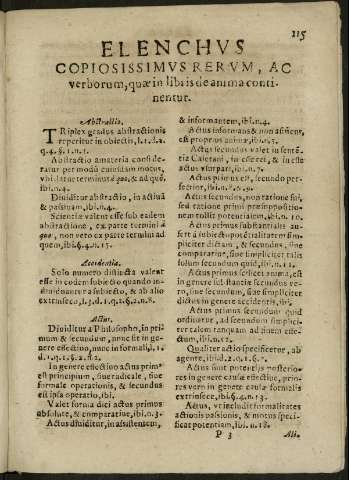 115
ELENCHVS
COPIOSISSIMVS RERVM, AC
verborum, quæ in libris de anima conti-
nentur.
Abstractio.
TRiplex gradus abstractionis
reperitur in obiectis, l.1.d.2.
q.4.§.11.n.1.
Abstractio a materia conside-
ratur per modū cuiusdam motus,
vbi datur terminus à quo, & ad quē,
ibi.n.4.
Diuiditur abstractio, in actiuā
& passiuam, ibi.n.4.
Scientiæ valent esse sub eadem
abstractione, ex parte termini à
quo, non vero ex parte termini ad
quem, ibi.§.4.n.15.
Accidentia.
Solo numero distincta valent
esse in eodem subiecto quando in-
diuiduantur a subiecto, & ab alio
extrinseco, l.3.d.1.q.1.§.2.n.8.
Actus.
Diuiditur a Philosopho, in pri-
mum & secundum, nunc sit in ge-
nere effectiuo, nunc in formali, l.1.
d.1.q.1.§.2.n.2.
In genere effectiuo actus primº
est principium, siue radicale, siue
formale operationis, & secundus
est ipsa operatio, ibi.
Valet forma dici actus primus
absolute, & comparatiue, ibi.n.3.
Actus diuiditur, in assistentem,
& informantem, ibi.n.4.
Actus informans & non assistens,
est proprius animæ, ibi.n.5.
Actus secundus valet in sentē-
tia Caietani, in esse rei, & in esse
actus vsurpari, ibi.n.7.
Actus primus est, secundo per-
fectior, ibi.n.8.&.9.
Actus secundus, non ratione sui,
sed ratione primi præsuppositio-
nem tollit potentialem, ibi.n.10.
Actus primus substantialis au-
fert a subiecto potentialitatem sim-
pliciter dictam, & secundus, siue
comparatiue, siue simpliciter talis
solum secundum quid, ibi.n.11.
Actus primus scilicet anima, est
in genere substantiæ secundus ve-
ro, siue secundum, siue simpliciter
dictus in genere accidentis, ibi.
Actus primus secundum quid
ordinatur, ad secundum simplici-
ter talem tanquam ad finem effe-
ctum, ibi.n.12.
Qualiter actio specificetur, ab
agente, ibi.d.2.q.1.§.1.
Actus sunt potentijs posterio-
res in genere causæ effectiuæ, prio-
res vero in genere causæ formalis
extrinsecæ, ibi.§.4.n.13.
Actus, vt includit formalitates
actionis passionis, & motus speci-
ficat potentiam, ibi.n.18.
P 3 Ali.